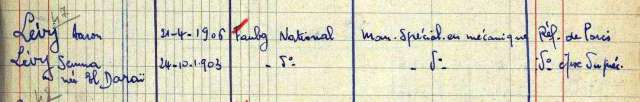 Lévy Aaron 21-4-1906 Faubg National Man. Spécial. en mécanique Réf. de Paris
Lévy Semma 24-10-1903 - d° - d° d° que Sup.
née El Daraï